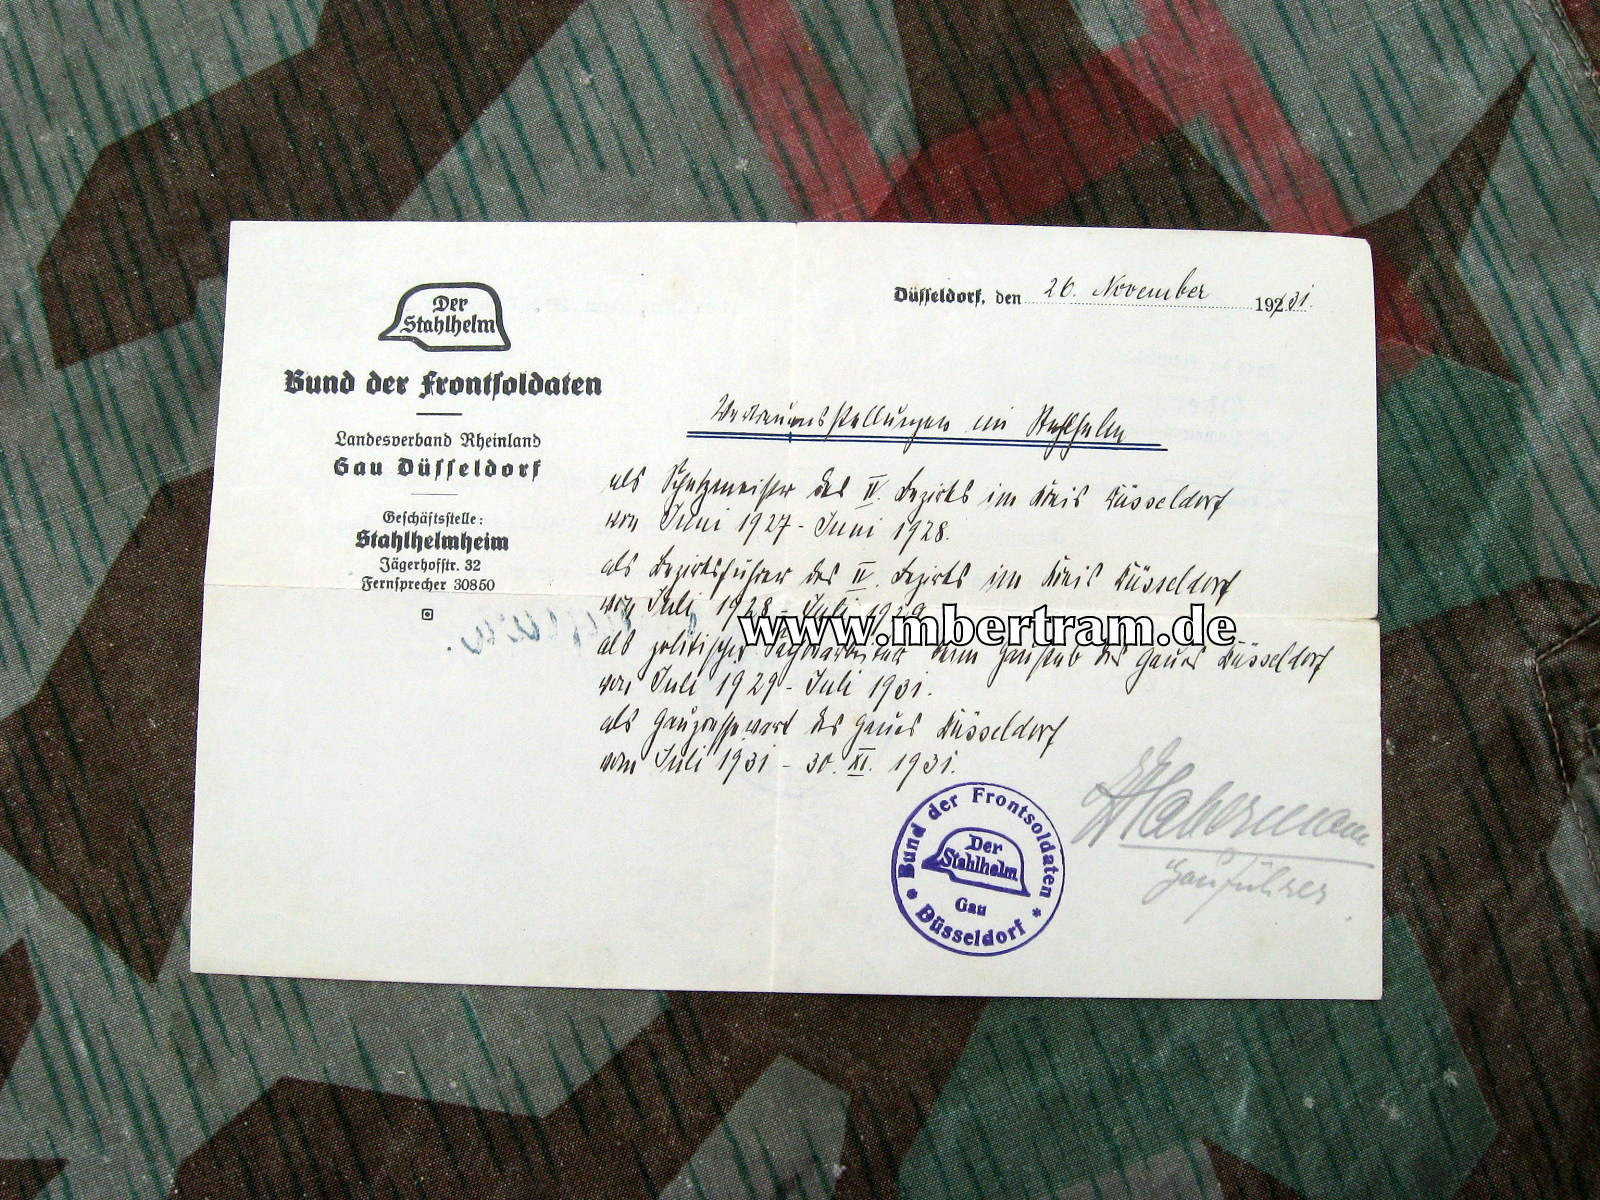 Der
Stahlhelm
Bund der Frontsoldaten
Landesverband Rheinland
Gau Düsseldorf
Geschäftsstelle:
Stahlhelmheim
Jägerhofstr. 32
Fernsprecher 30850
Düsseldorf, den 26. November 1931
Vertrauensstellungen im Stahlhelm
als Schatzmeister des IV. Bezirks im Kreis Düsseldorf
von Juni 1927 - Juni 1928.
als Bezirksführer des IV. Bezirks im Kreis Düsseldorf
von Juli 1928 - Juli 1929
www.mbertram.de
als politischer beim Gaustab des Gaues Düsseldorf
von Juli 1929 - Juli 1931.
als Gaupressewart des Gaues Düsseldorf
vom Juli 1931 - 30. XI. 1931.
Habermann
Gauführer.
Bund der Frontsoldaten
Der
Stahlhelm
Gau
* Düsseldorf *